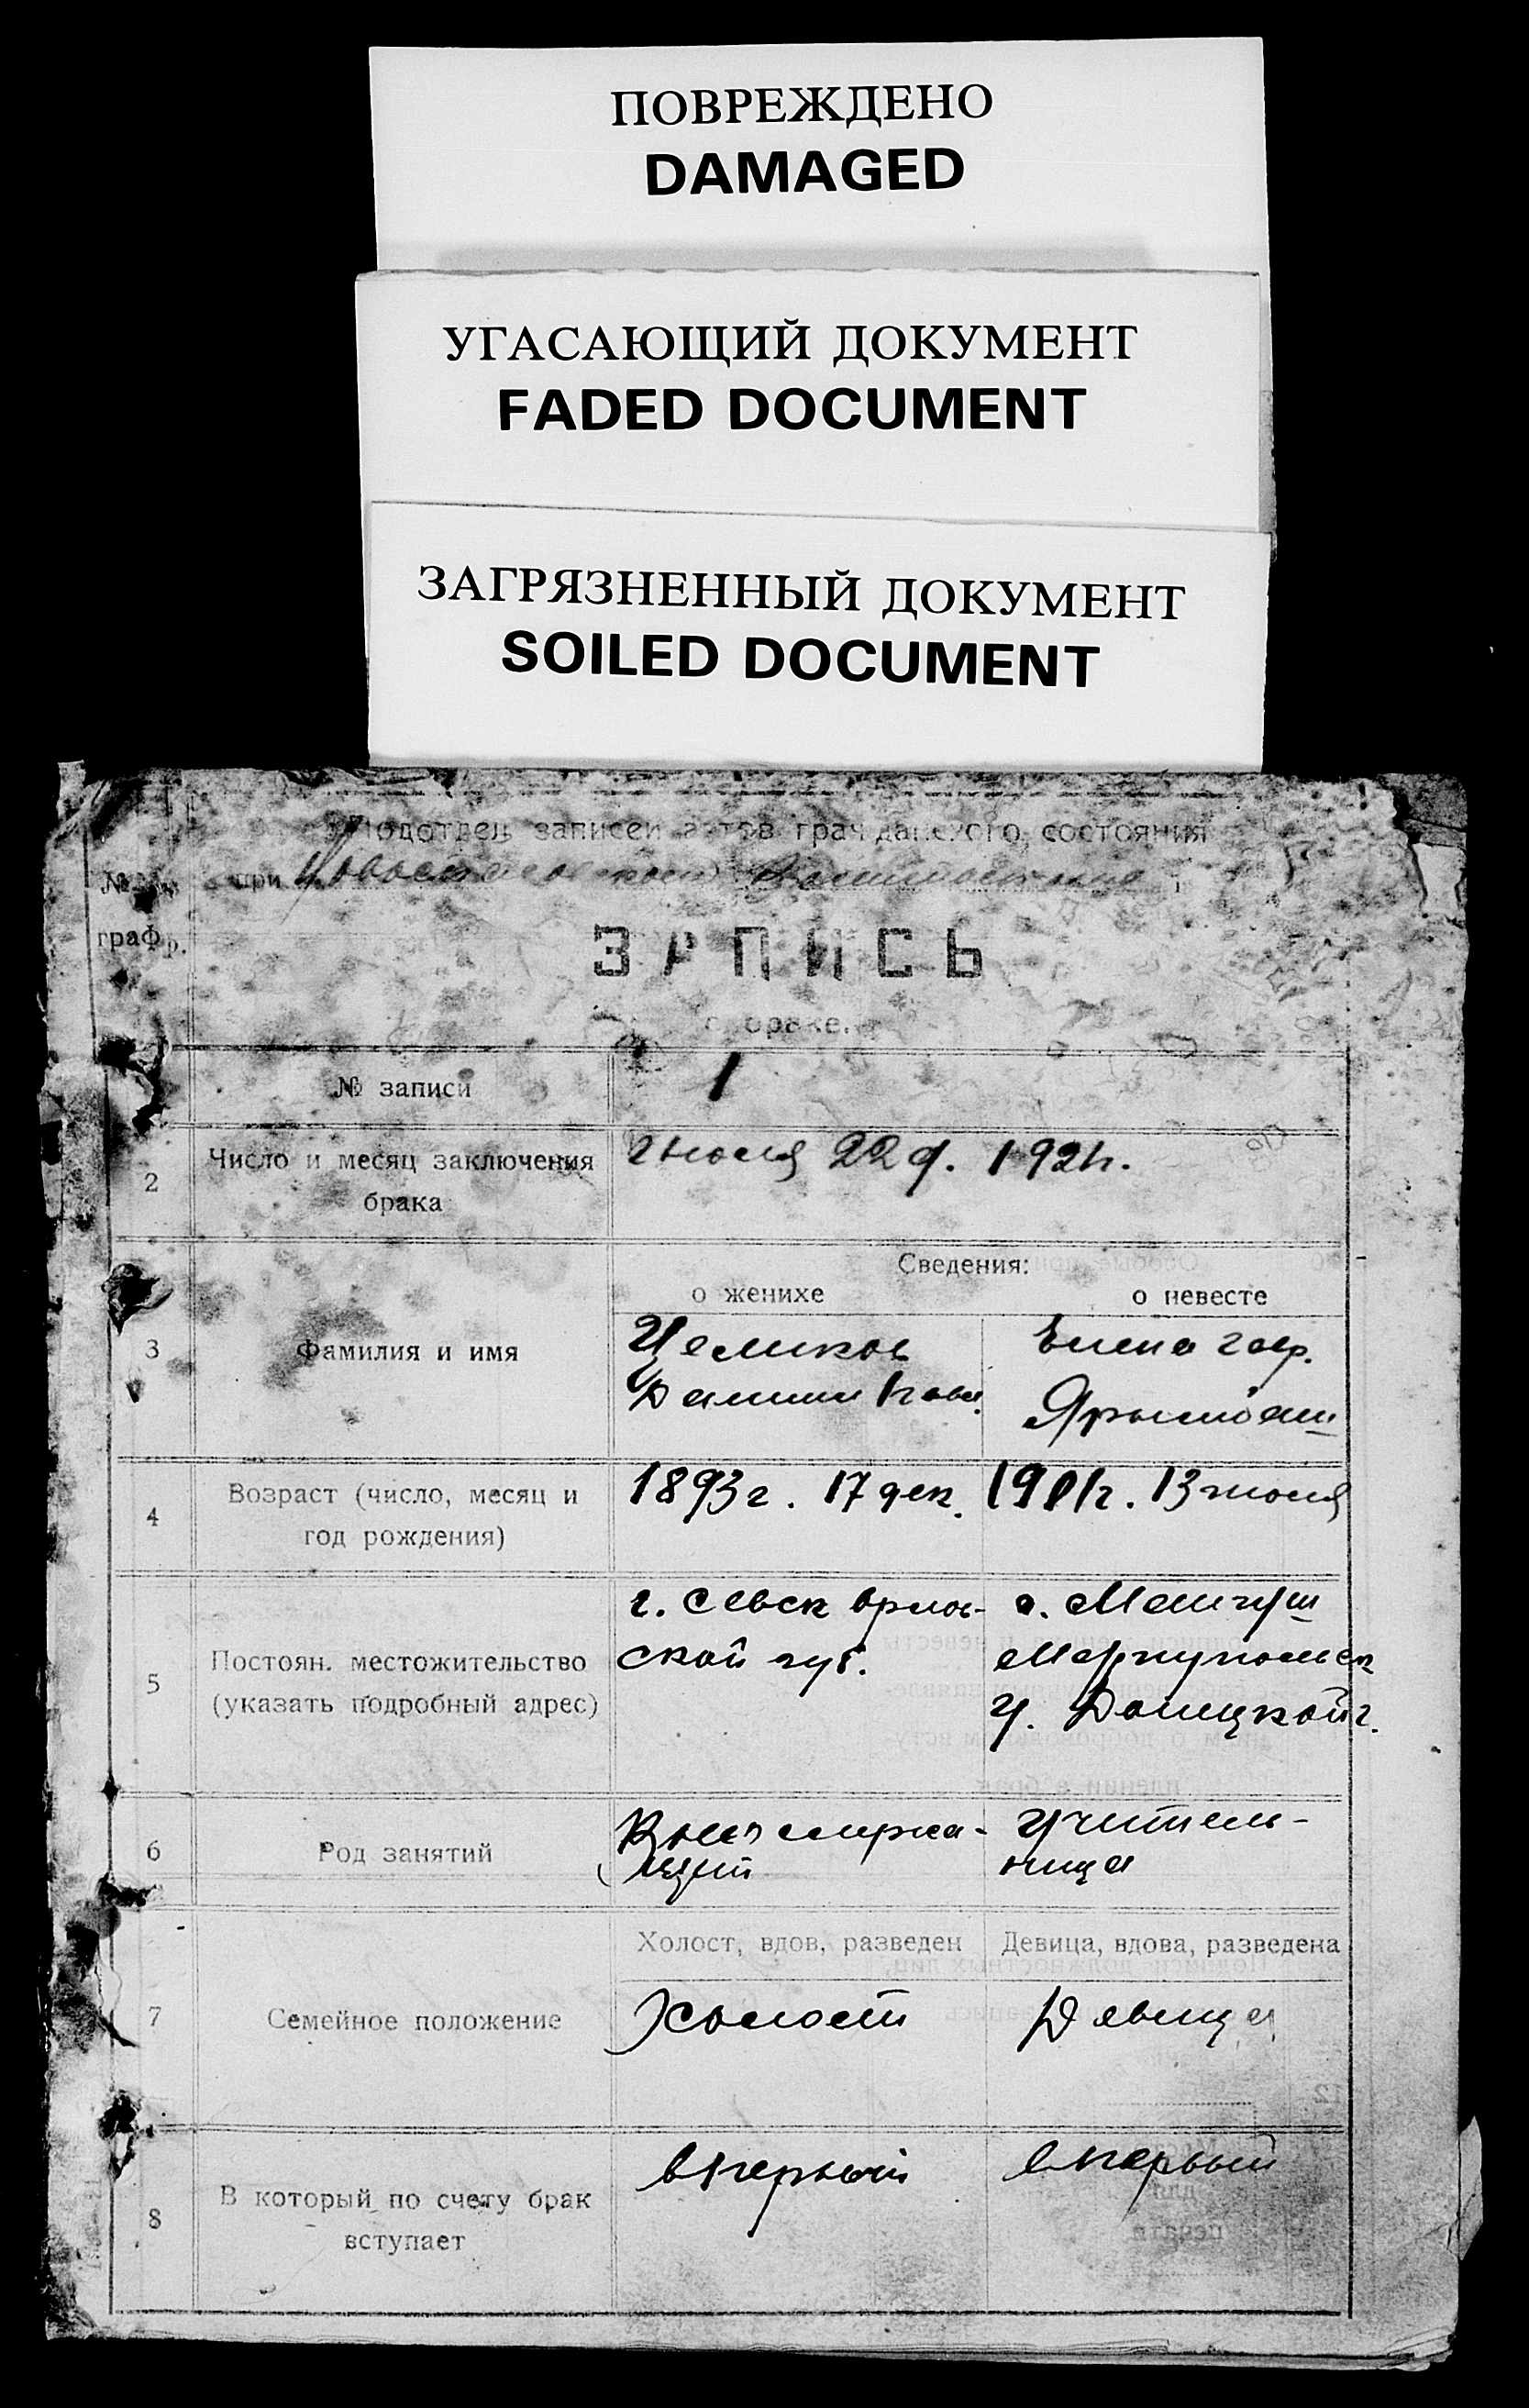 ПОВРЕЖДЕНО
DAMAGED
УГАСАЮЩИЙ ДОКУМЕНТ
FADED DOCUMENT
ЗАГРЯЗНЕННЫЙ ДОКУМЕНТ
SOILED DOCUMENT
Подотдел записей актов гражданского состояния
№№ при
граф.
ЗАПИСЬ
о браке.
№ записи 1
2 Число и месяц заключения брака
Июля 22 д. 1921г.
Сведения:
о женихе о невесте
3 Фамилия и имя
Целиков Елена Гавр.
Даниил Павл.
4 Возраст (число, месяц и год рождения)
1893г. 17 дек. 1901г. 13 июля
5 Постоян. местожительство (указать подробный адрес)
г. Севск Орлов- с. Мангуш
ской губ. Мариупольск
у. Донецкой г.
6 Род занятий
Военнослужа- Учитель-
щий ница
Холост, вдов, разведен Девица, вдова, разведена
7 Семейное положение
Холост Девица
8 В который по счету брак вступает
в первый в первый